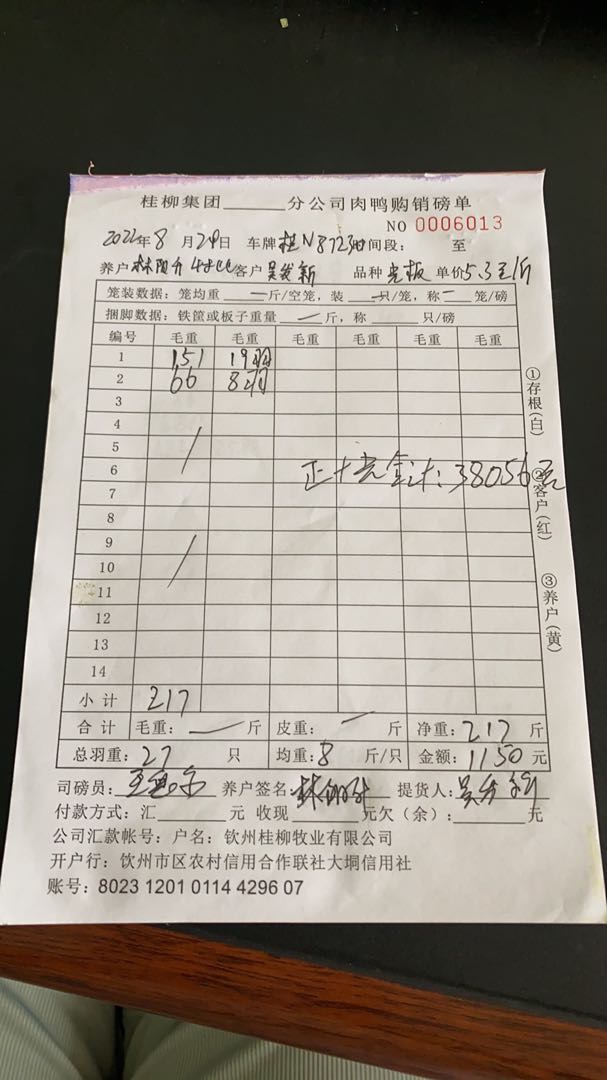 桂柳集团______分公司肉鸭购销磅单
NO 0006013
2022年8月29日 车牌桂N8723时间段: 至
养户林阳 客户吴发新 品种光板 单价5.3元/斤
笼装数据:笼均重一斤/空笼,装一只/笼,称一笼/磅
捆脚数据:铁筐或板子重量一斤,称____只/磅
编号 毛重 毛重 毛重 毛重 毛重 毛重
1 151 19羽
2 66 8羽
3
4
5
6 正十光合计:38056元
7
8
9
10
11
12
13
14
小计 217
合计 毛重:一斤 皮重:一斤 净重:217斤
总羽重:27只 均重:8斤/只 金额:1150元
①存根(白)
②客户(红)
③养户(黄)
司磅员: 养户签名: 提货人:吴发新
付款方式:汇______元 收现______元欠(余):______元
公司汇款帐号:户名:钦州桂柳牧业有限公司
开户行:饮州市区农村信用合作联社大垌信用社
账号:8023 1201 0114 4296 07